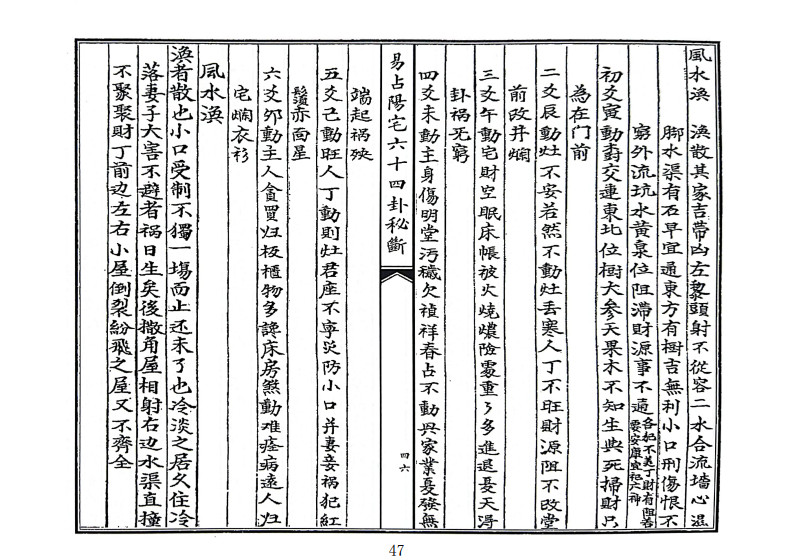 風水渙　渙散其家吉帶凶左黎頭射不從容二水合流墻心濕
脚水渠有石早宜通東方有樹吉無利小口刑傷恨不
窮外流坑水黃泉位阻滯財源事不通
初爻寅動樹交連東北位樹大參天果木不知生與死掃財只
為在門前
二爻辰動灶不安若然不動灶丟寒人丁不旺財源阻不改堂
前改井爛
三爻午動宅財空眠床帳被火燒燶險處重重多進退憂天淂
卦禍死窮
四爻未動主身傷明堂污穢欠禎祥春占不動興家業憂發無
端起禍殃
易占陽宅六十四卦秘斷
四六
五爻己動旺人丁動則灶君座不寧災防小口并妻妾禍犯紅
鬚赤面星
六爻夘動主人貪買归板櫃物多讒床房煞動难痊病遠人归
宅爛衣衫
風水渙
渙者散也小口受制不獨一塲而止还未了也冷淡之居久住冷
落妻子大害不避者禍日生矣後撒角屋相射右边水渠直撞
不聚聚財丁前边左右小屋倒裂紛飛之屋又不齊全
47